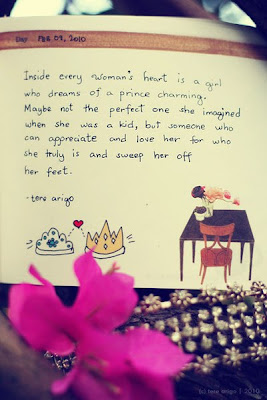 Day FEB 07, 2010
Inside every woman's heart is a girl
who dreams of a prince charming.
Maybe not the perfect one she imagined
when she was a kid, but someone who
can appreciate and love her for who
she truly is and sweep her off
her feet.
-tere arigo
(c) tere arigo | 2010